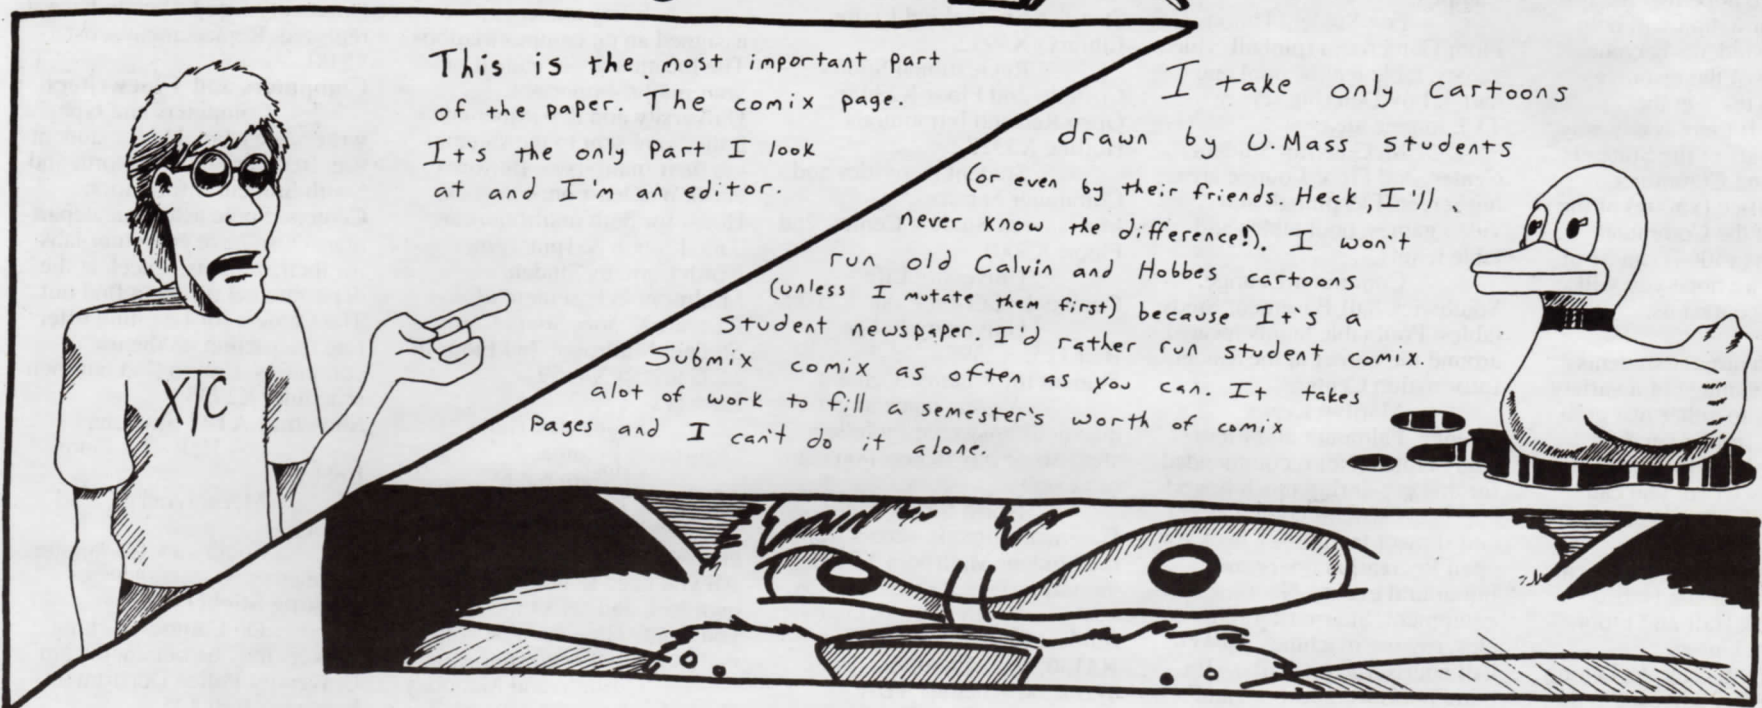 This is the most important part
of the paper. The comix page.
It's the only part I look
at and I'm an editor.
XTC
I take only cartoons
drawn by U.Mass students
(or even by their friends. Heck, I'll
never know the difference!). I won't
run old Calvin and Hobbes cartoons
(unless I mutate them first) because It's
Student newspaper. I'd rather run student comix.
Submix comix as often as you can. It takes
alot of work to fill a semester's worth of comix
pages and I can't do it alone.